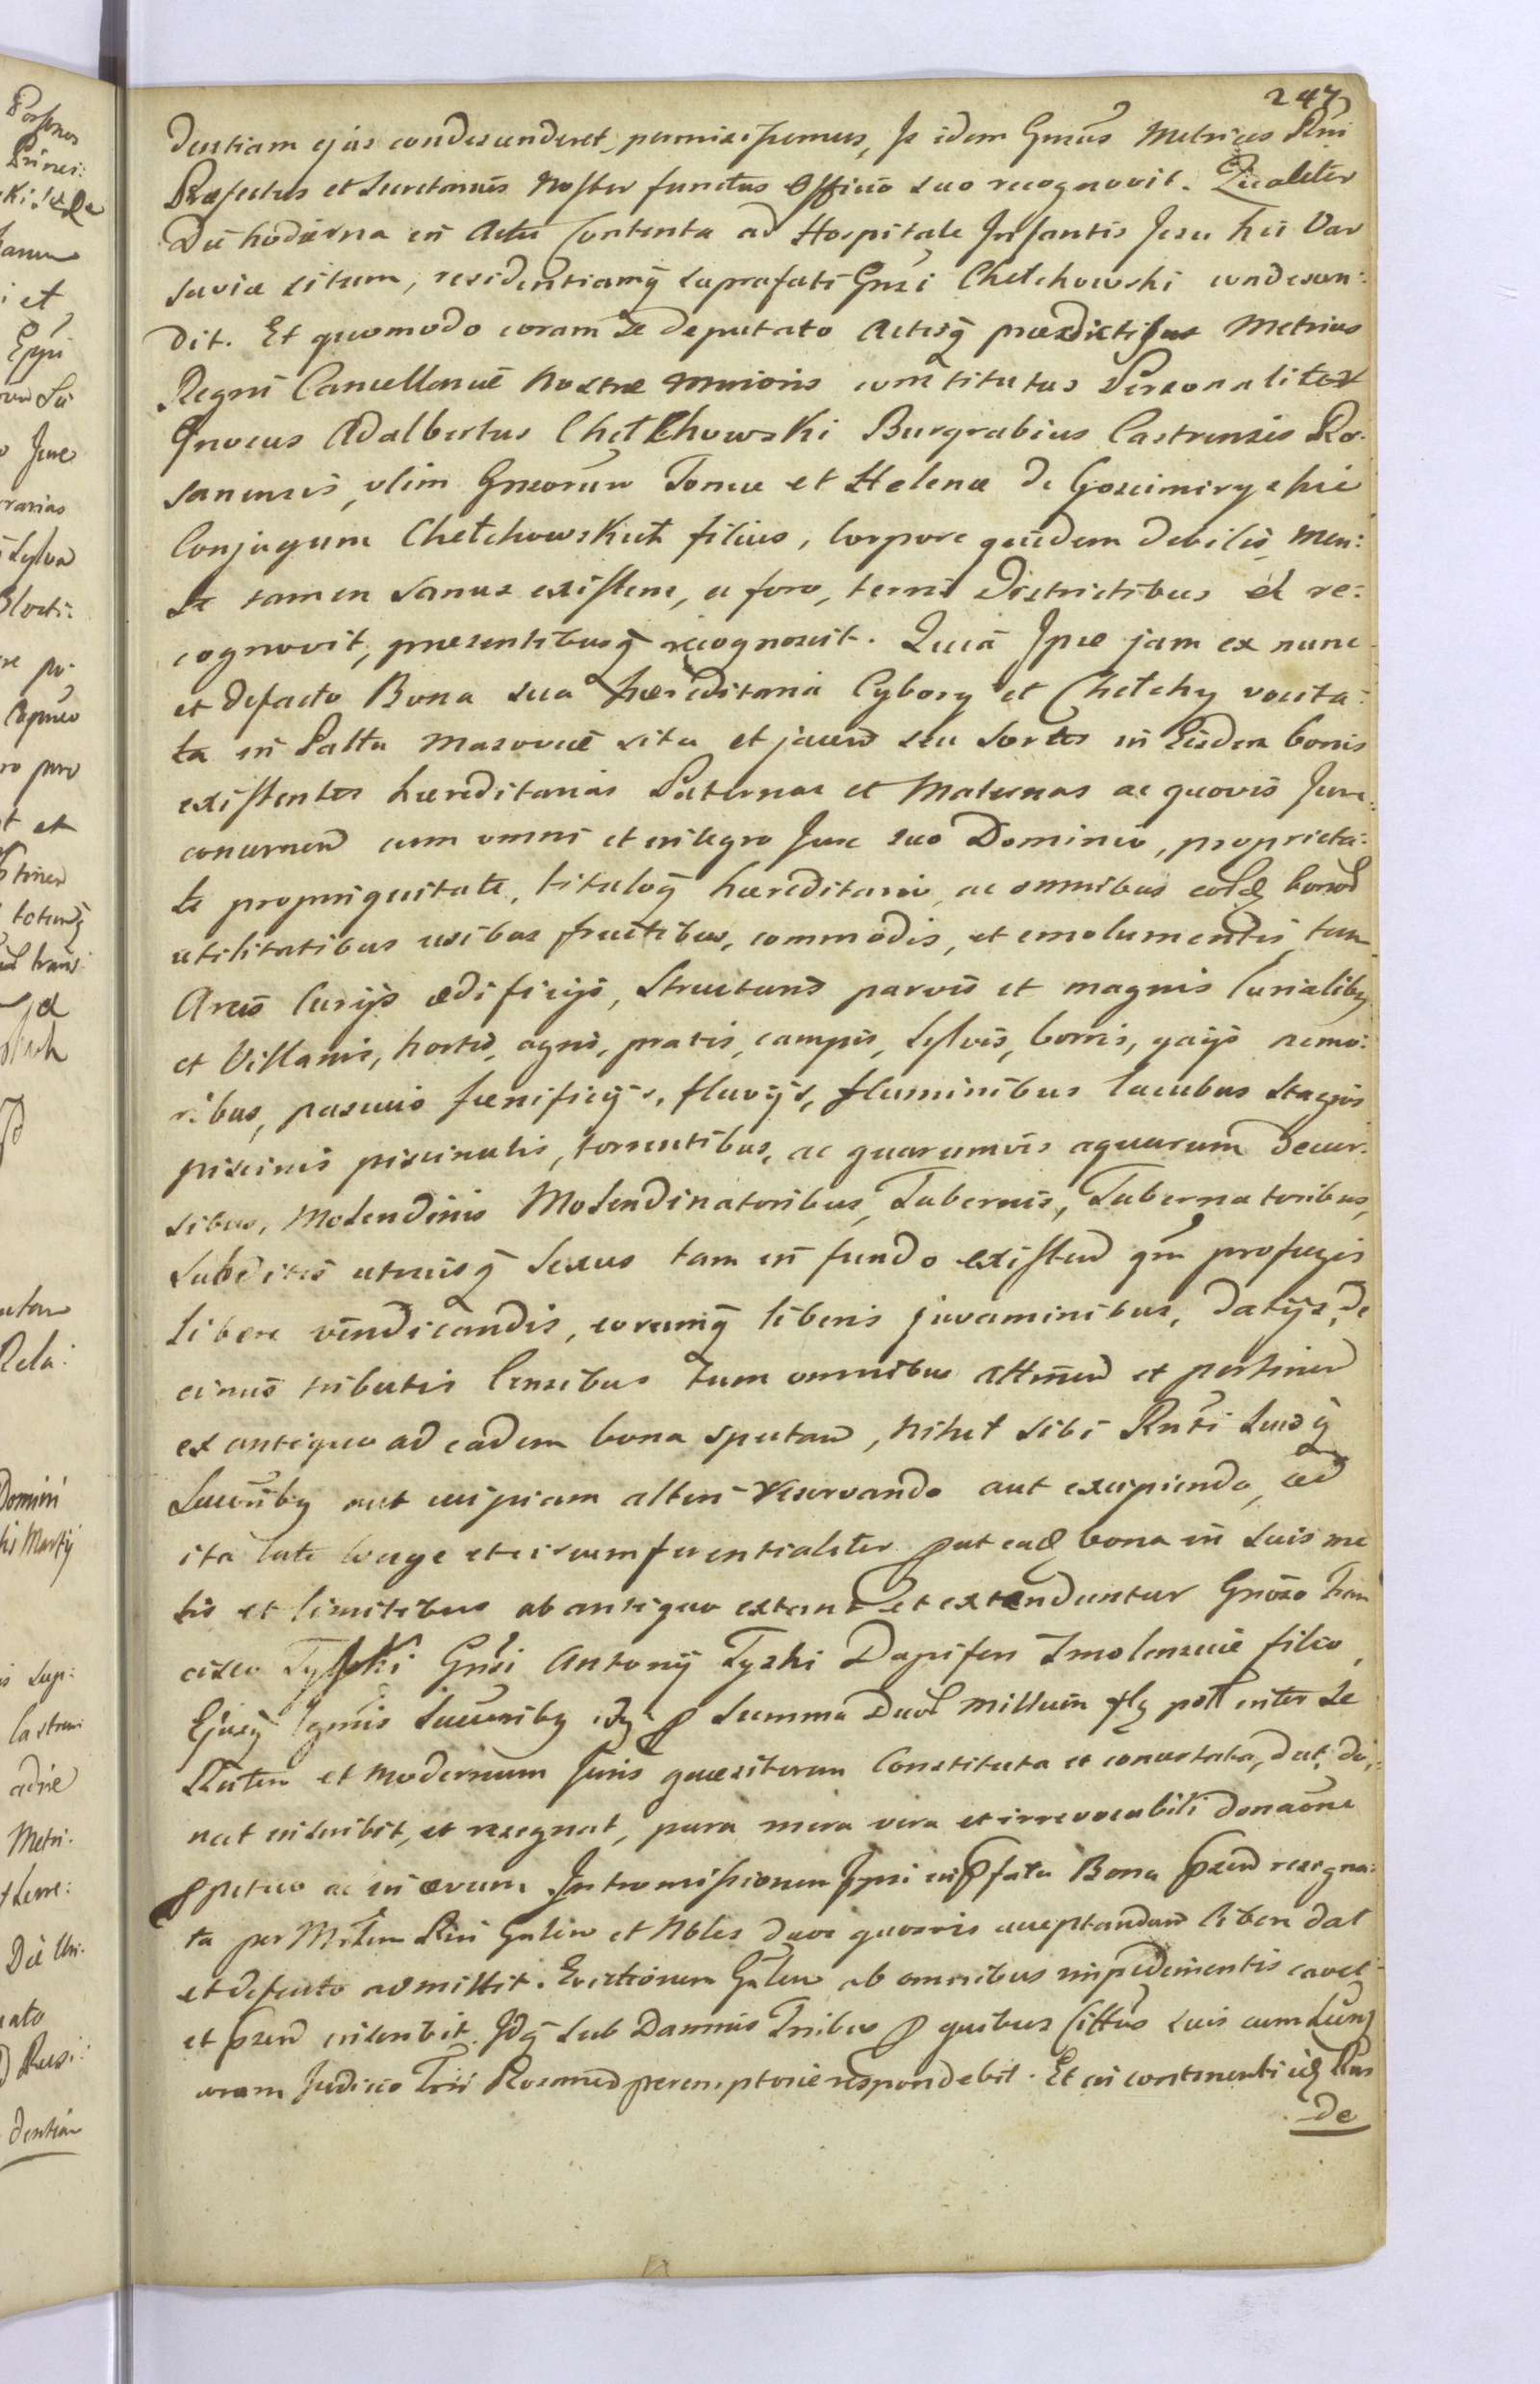 247
dentiam ejus condescenderet, permisissemus, Is idem Gnsus Metrices Rni
Præfectus et Secretarius Noster functus Officio suo recognovit. Qualiter
Die hodierna in Actu Contenta ad Hospitale Infantis Jesu hic Var
saviæ situm, residentiamq suprafati Gnsi Chełchowski condescen:
dit. Et quomodo coram se deputato Actisq prædictis Metrices
Regni Cancellariæ Nostræ Maioris comtitutus Personaliter
Gnosus Adalbertus Chełchowski Burgrabius Castrensis Ro-
sanensis, olim Gnsorum Tomæ et Helenæ de Goscimirzᵒ
Conjugum Chełchowskich filius, Corpore quidem debilis, Men:
te tamen sanus existens, a foro, terris Districtibus et re:
cognovit, præsentibusq recognoscit. Quia Ipse jam ex nunc
et defacto Bona sua hæreditaria Cybory et Chełchy vocita:
ta in Pałtu Masoviæ sita et jacen seu Sortes in Eisdem bonis
existentes hæreditarias Paternas et Maternas ac quovis Jure
concernen cum omni et integro Jure suo Dominio, proprieta:
te propinquitate, tituloq hæreditario, ac omnibus eord bonod
utilitatibus usibus fructibus, commodis, et emolumentis, tum
Areis Curijs ædificijs, Structuris parvis et magnis Curialiby
et Villanis, hortis, agris, pratis, campis, Sylvis, borris, gajis nemo:
ribus, pascuis fœnificijs, fluvijs, fluminibus lacubus Stagnis
piscinis piscinulis, torrentibus, ac quarumvis aquarum decur:
sibus, Molendinis Molendinatoribus, Tabernis, Tabernatoribus,
Subditis utriusq Sexus tam in fundo existen qm profugis
libere vindicandis, eorumq liberis juvaminibus, datijs, de
cimis tributis Censibus tum omnibus attinen et pertinen
ex antiquo ad eadem bona spectan, nihil sibi Rnti Suisq
Succriby aut cuipiam alteri reservando aut excipiendo, sed
ita late longe et circumferentialiter put ead bona in suis me
tis et limitibus ab antiquo extant et extenduntur Gnoso Fran
cisco Tyski Gnsi Antonij Tyski Dapiferi Smolensciæ filio,
Ejusq Succriby Summa Duod Millium poll inter se
Rnten et Modernum Juris quæsitorem Constituta et concertata, dat, do:
nat inscribit, et resignat, pura mera vera et irrevocabili donaone
ppetuo ac in ævum. Intromissionem Ipsi in pfata Bona psen resigna:
ta per Mrlem Rni Gnlem et Nbles duos quosvis acceptandam libere dat
et defacto admittit. Evictionem Gnlem ab omnibus impedimentis cavet
et psen inscribit. Idq sub Damnis Tribus p quibus Cittus suis cum
coram Judicio Trri Rosanen peremptorie respondebit. Et in continenti
de